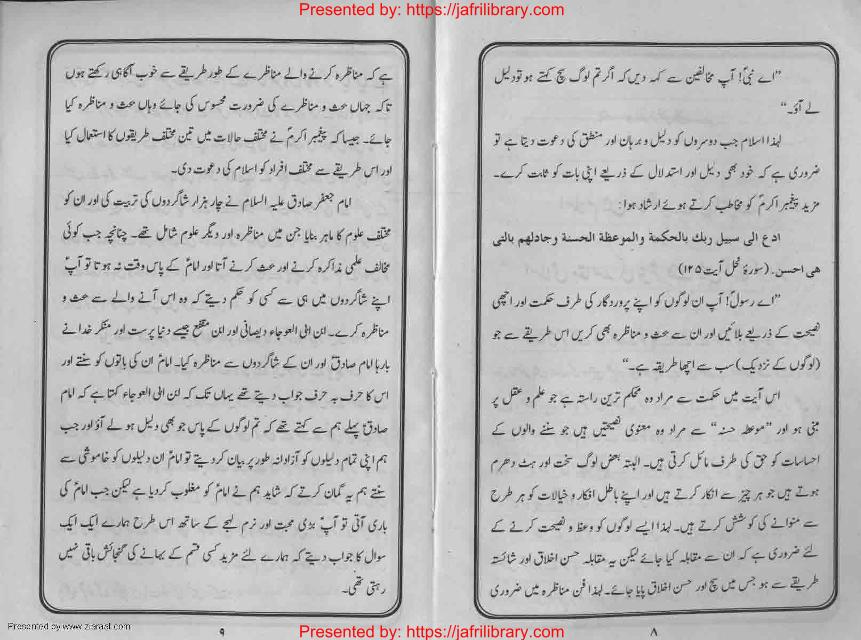 Presented by: https://jafrilibrary.com
”اے نبیؐ! آپ مخالفین سے کہہ دیں کہ اگر تم لوگ سچ کہتے ہو تو دلیل
لے آؤ۔“
لہٰذا اسلام جب دوسروں کو دلیل و برہان اور منطق کی دعوت دیتا ہے تو
ضروری ہے کہ خود بھی دلیل اور استدلال کے ذریعے اپنی بات کو ثابت کرے۔
مزید پیغمبر اکرمؐ کو مخاطب کرتے ہوئے ارشاد ہوا:
ادع الی سبیل ربك بالحکمة والموعظة الحسنة وجادلهم بالتی
هی احسن۔ (سورۂ نحل آیت ۱۲۵)
”اے رسولؐ! آپ ان لوگوں کو اپنے پروردگار کی طرف حکمت اور اچھی
نصیحت کے ذریعے بلائیں اور ان سے بحث و مناظرہ بھی کریں اس طریقے سے جو
(لوگوں کے نزدیک) سب سے اچھا طریقہ ہے۔“
اس آیت میں حکمت سے مراد وہ محکم ترین راستہ ہے جو علم و عقل پر
مبنی ہو اور ”موعظہ حسنہ“ سے مراد وہ معنوی نصیحتیں ہیں جو سننے والوں کے
احساسات کو حق کی طرف مائل کرتی ہیں۔ البتہ بعض لوگ سخت اور ہٹ دھرم
ہوتے ہیں جو ہر چیز سے انکار کرتے ہیں اور اپنے باطل افکار و خیالات کو ہر طرح
سے منوانے کی کوشش کرتے ہیں۔ لہٰذا ایسے لوگوں کو وعظ و نصیحت کرنے کے
لئے ضروری ہے کہ ان سے مقابلہ کیا جائے لیکن یہ مقابلہ حسن اخلاق اور شائستہ
طریقے سے ہو جس میں سچ اور حسن اخلاق پایا جائے۔ لہٰذا فن مناظرہ میں ضروری
۸
ہے کہ مناظرہ کرنے والے مناظرے کے طور طریقے سے خوب آگاہی رکھتے ہوں
تاکہ جہاں بحث و مناظرے کی ضرورت محسوس کی جائے وہاں بحث و مناظرہ کیا
جائے۔ جیسا کہ پیغمبر اکرمؐ نے مختلف حالات میں تین مختلف طریقوں کا استعمال کیا
اور اس طریقے سے مختلف افراد کو اسلام کی دعوت دی۔
امام جعفر صادق علیہ السلام نے چار ہزار شاگردوں کی تربیت کی اور ان کو
مختلف علوم کا ماہر بنایا جن میں مناظرہ اور دیگر علوم شامل تھے۔ چنانچہ جب کوئی
مخالف علمی مذاکرہ کرنے اور بحث کرنے آتا اور امامؑ کے پاس وقت نہ ہوتا تو آپؑ
اپنے شاگردوں میں ہی سے کسی کو حکم دیتے کہ وہ اس آنے والے سے بحث و
مناظرہ کرے۔ ابن ابی العوجاء دیصانی اور ابن مقفع جیسے دنیا پرست اور منکر خدا نے
بارہا امام صادقؑ اور ان کے شاگردوں سے مناظرہ کیا۔ امامؑ ان کی باتوں کو سنتے اور
اس کا حرف بہ حرف جواب دیتے تھے یہاں تک کہ ابن ابی العوجاء کہتا ہے کہ امام
صادقؑ پہلے ہم سے کہتے تھے کہ تم لوگوں کے پاس جو بھی دلیل ہو لے آؤ اور جب
ہم اپنی تمام دلیلوں کو آزادانہ طور پر بیان کردیتے تو امامؑ ان دلیلوں کو خاموشی سے
سنتے ہم یہ گمان کرتے کہ شاید ہم نے امامؑ کو مغلوب کردیا ہے لیکن جب امامؑ کی
باری آتی تو آپؑ بڑی محبت اور نرم لہجے کے ساتھ اس طرح ہمارے ایک ایک
سوال کا جواب دیتے کہ ہمارے لئے مزید کسی قسم کے بہانے کی گنجائش باقی نہیں
رہتی تھی۔
۹
Presented by www.ziaraat.com
Presented by: https://jafrilibrary.com